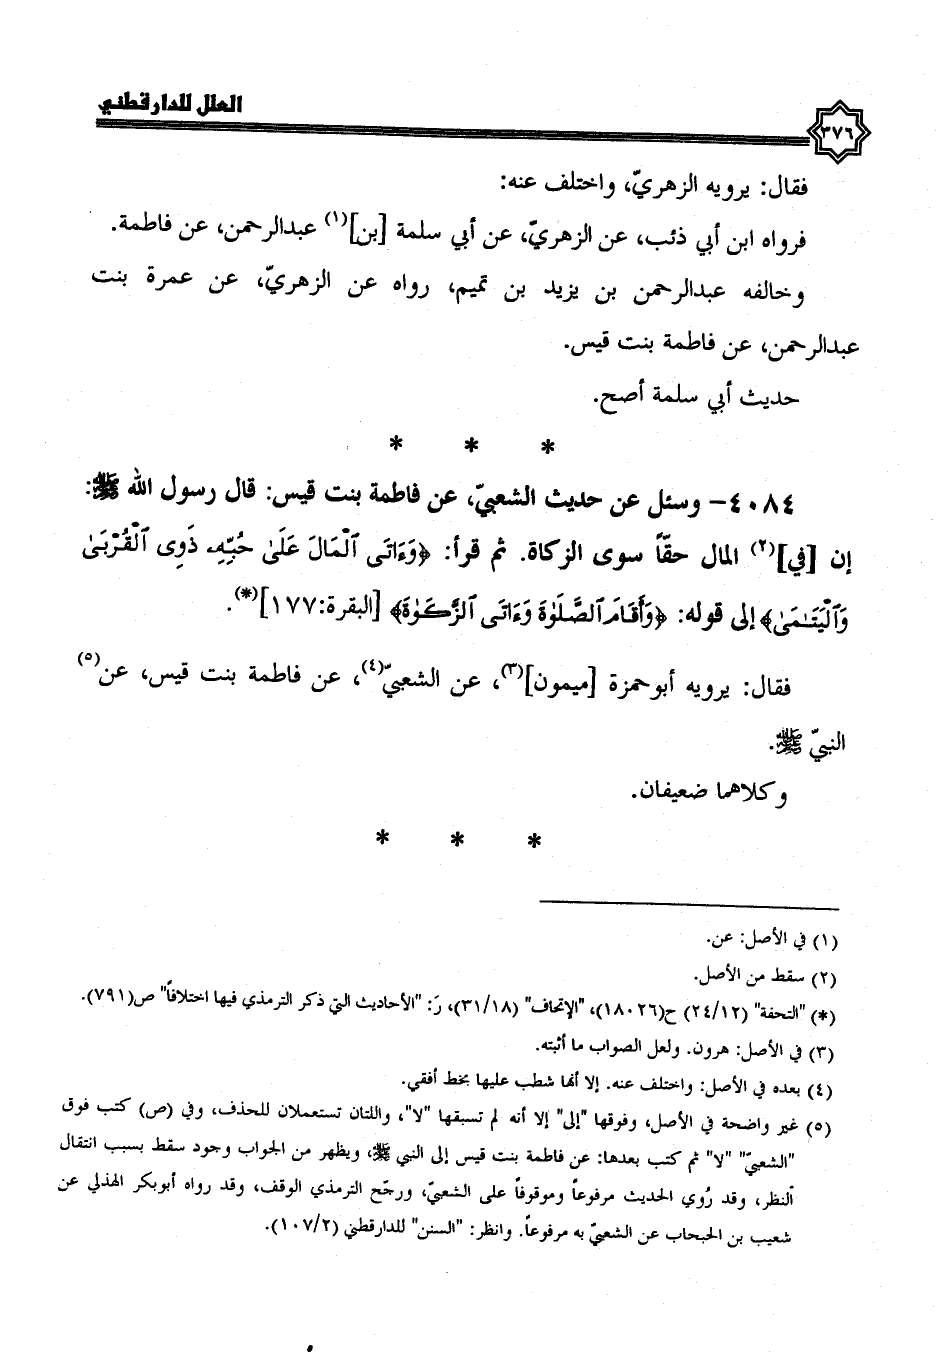 العلل للدارقطني
٣٧٦
فقال: يرويه الزهريّ، واختلف عنه:
فرواه ابن أبي ذئب، عن الزهريّ، عن أبي سلمة [بن](١) عبدالرحمن، عن فاطمة.
وخالفه عبدالرحمن بن يزيد بن تميم، رواه عن الزهريّ، عن عمرة بنت
عبدالرحمن، عن فاطمة بنت قيس.
حديث أبي سلمة أصح.
* * *
٤٠٨٤- وسئل عن حديث الشعبيّ، عن فاطمة بنت قيس: قال رسول الله ﷺ:
إن [في](٢) المال حقّاً سوى الزكاة. ثم قرأ: ﴿وَءَاتَى ٱلْمَالَ عَلَىٰ حُبِّهِۦ ذَوِى ٱلْقُرْبَىٰ
وَٱلْيَتَـٰمَىٰ﴾ إلى قوله: ﴿وَأَقَامَ ٱلصَّلَوٰةَ وَءَاتَى ٱلزَّكَوٰةَ﴾ [البقرة:١٧٧](*).
فقال: يرويه أبوحمزة [ميمون](٣)، عن الشعبيّ(٤)، عن فاطمة بنت قيس، عن(٥)
النبيّ ﷺ.
وكلاهما ضعيفان.
* * *
(١) في الأصل: عن.
(٢) سقط من الأصل.
(*) "التحفة" (٢٤/١٢) ح(١٨٠٢٦)، "الإتحاف" (٣١/١٨)، رَ: "الأحاديث التي ذكر الترمذي فيها اختلافاً" ص(٧٩١).
(٣) في الأصل: هرون. ولعل الصواب ما أثبته.
(٤) بعده في الأصل: واختلف عنه. إلا أنها شطب عليها بخط أفقي.
(٥) غير واضحة في الأصل، وفوقها "إلى" إلا أنه لم تسبقها "لا"، واللتان تستعملان للحذف، وفي (ص) كتب فوق
"الشعبيّ" "لا" ثم كتب بعدها: عن فاطمة بنت قيس إلى النبي ﷺ، ويظهر من الجواب وجود سقط بسبب انتقال
النظر، وقد رُوي الحديث مرفوعاً وموقوفاً على الشعبيّ، ورجّح الترمذي الوقف، وقد رواه أبوبكر الهذلي عن
شعيب بن الحبحاب عن الشعبيّ به مرفوعاً. وانظر: "السنن" للدارقطني (١٠٧/٢).